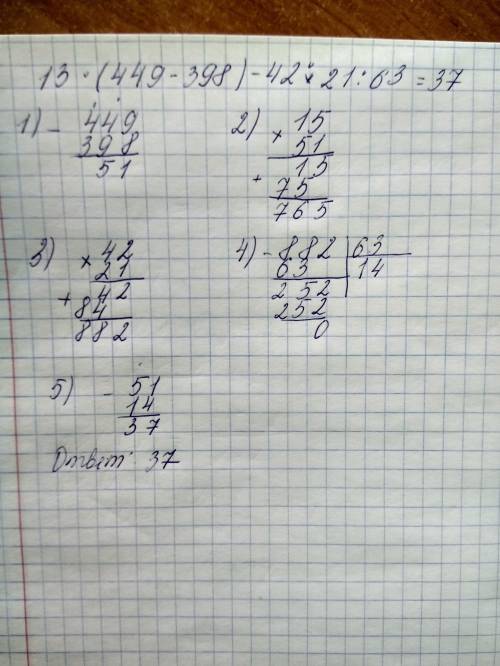 13 · (449 - 398) - 42 × 21 : 63 = 37
1) - 449
398
51
2) × 15
51
+ 15
75
765
3) × 42
21
+ 42
84
882
4) - 882 | 63
63 14
252
252
0
5) - 51
14
37
Ответ: 37